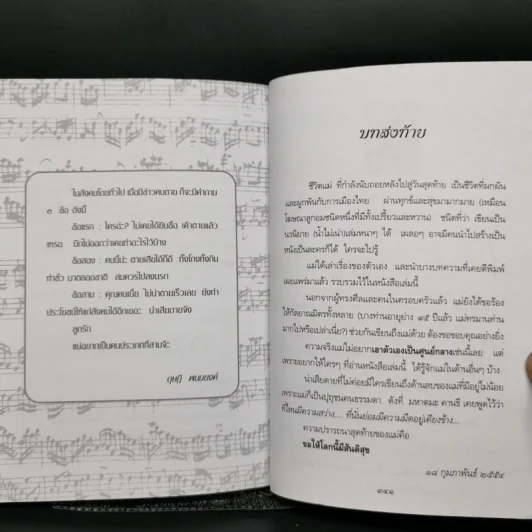 ในสังคมโดยทั่วไป เมื่อมีข่าวคนตาย ก็จะมีคำถาม
๓ ข้อ ดังนี้
ข้อแรก : ใครน่ะ? ไม่เคยได้ยินชื่อ เค้าตายแล้ว
เหรอ นึกไม่ออกว่าเคยทำอะไรไว้บ้าง
ข้อสอง : คนนี้น่ะ ตายเสียได้ก็ดี ทั้งโกงทั้งกิน
ทำชั่ว มาตลอดชาติ สมควรไปลงนรก
ข้อสาม : คุณคนเนี้ย ไม่น่าตายเร็วเลย ยังทำ
ประโยชน์ให้แก่สังคมได้อีกเยอะ น่าเสียดายจัง
ลูกรัก
แม่อยากเป็นคนประเภทที่สามจ้ะ
ดุษฎี พนมยงค์
บทส่งท้าย
ชีวิตแม่ ที่กำลังนับถอยหลังไปสู่วันสุดท้าย เป็นชีวิตที่ผกผัน
และผูกพันกับการเมืองไทย ผ่านทุกข์และสุขมามากมาย (เหมือน
โฆษณาลูกอมชนิดหนึ่งที่มีทั้งเปรี้ยวและหวาน) ชนิดที่ว่า เขียนเป็น
นวนิยาย (น้ำไม่เน่า) เล่มหนาๆ ได้ เผลอๆ อาจมีคนนำไปสร้างเป็น
หนังเป็นละครก็ได้ ใครจะไปรู้
แม่ได้เล่าเรื่องของตัวเอง และนำบางบทความที่เคยตีพิมพ์
เผยแพร่มาแล้ว รวบรวมไว้ในหนังสือเล่มนี้
นอกจากผู้ทรงศีลและคนในครอบครัวแล้ว แม่ยังได้ขอร้อง
ให้กัลยาณมิตรทั้งหลาย (บางท่านอายุย่าง ๙๕ ปีแล้ว แม่ทรมานท่าน
มากไปหรือเปล่าเนี่ย?) ช่วยกันเขียนถึงแม่ด้วย ต้องขอขอบคุณอย่างยิ่ง
ความจริงแม่ไม่อยากเอาตัวเองเป็นศูนย์กลางเช่นนี้เลย แต่
เพราะอยากให้ใครๆ ที่อ่านหนังสือเล่มนี้ ได้รู้จักแม่ในด้านอื่นๆ บ้าง
น่าเสียดายที่ไม่ค่อยมีใครเขียนถึงด้านลบของแม่ที่มีอยู่ไม่น้อย
เพราะแม่ก็เป็นปุถุชนคนธรรมดา ดังที่ มหาตมะ คานธี เคยพูดไว้ว่า
ที่ไหนมีความสว่าง... ที่นั่นย่อมมีความมืดอยู่เคียงข้าง...
ความปรารถนาสุดท้ายของแม่คือ
ขอให้โลกนี้มีสันติสุข
๑๘ กุมภาพันธ์ ๒๕๕๔
๓๔๑